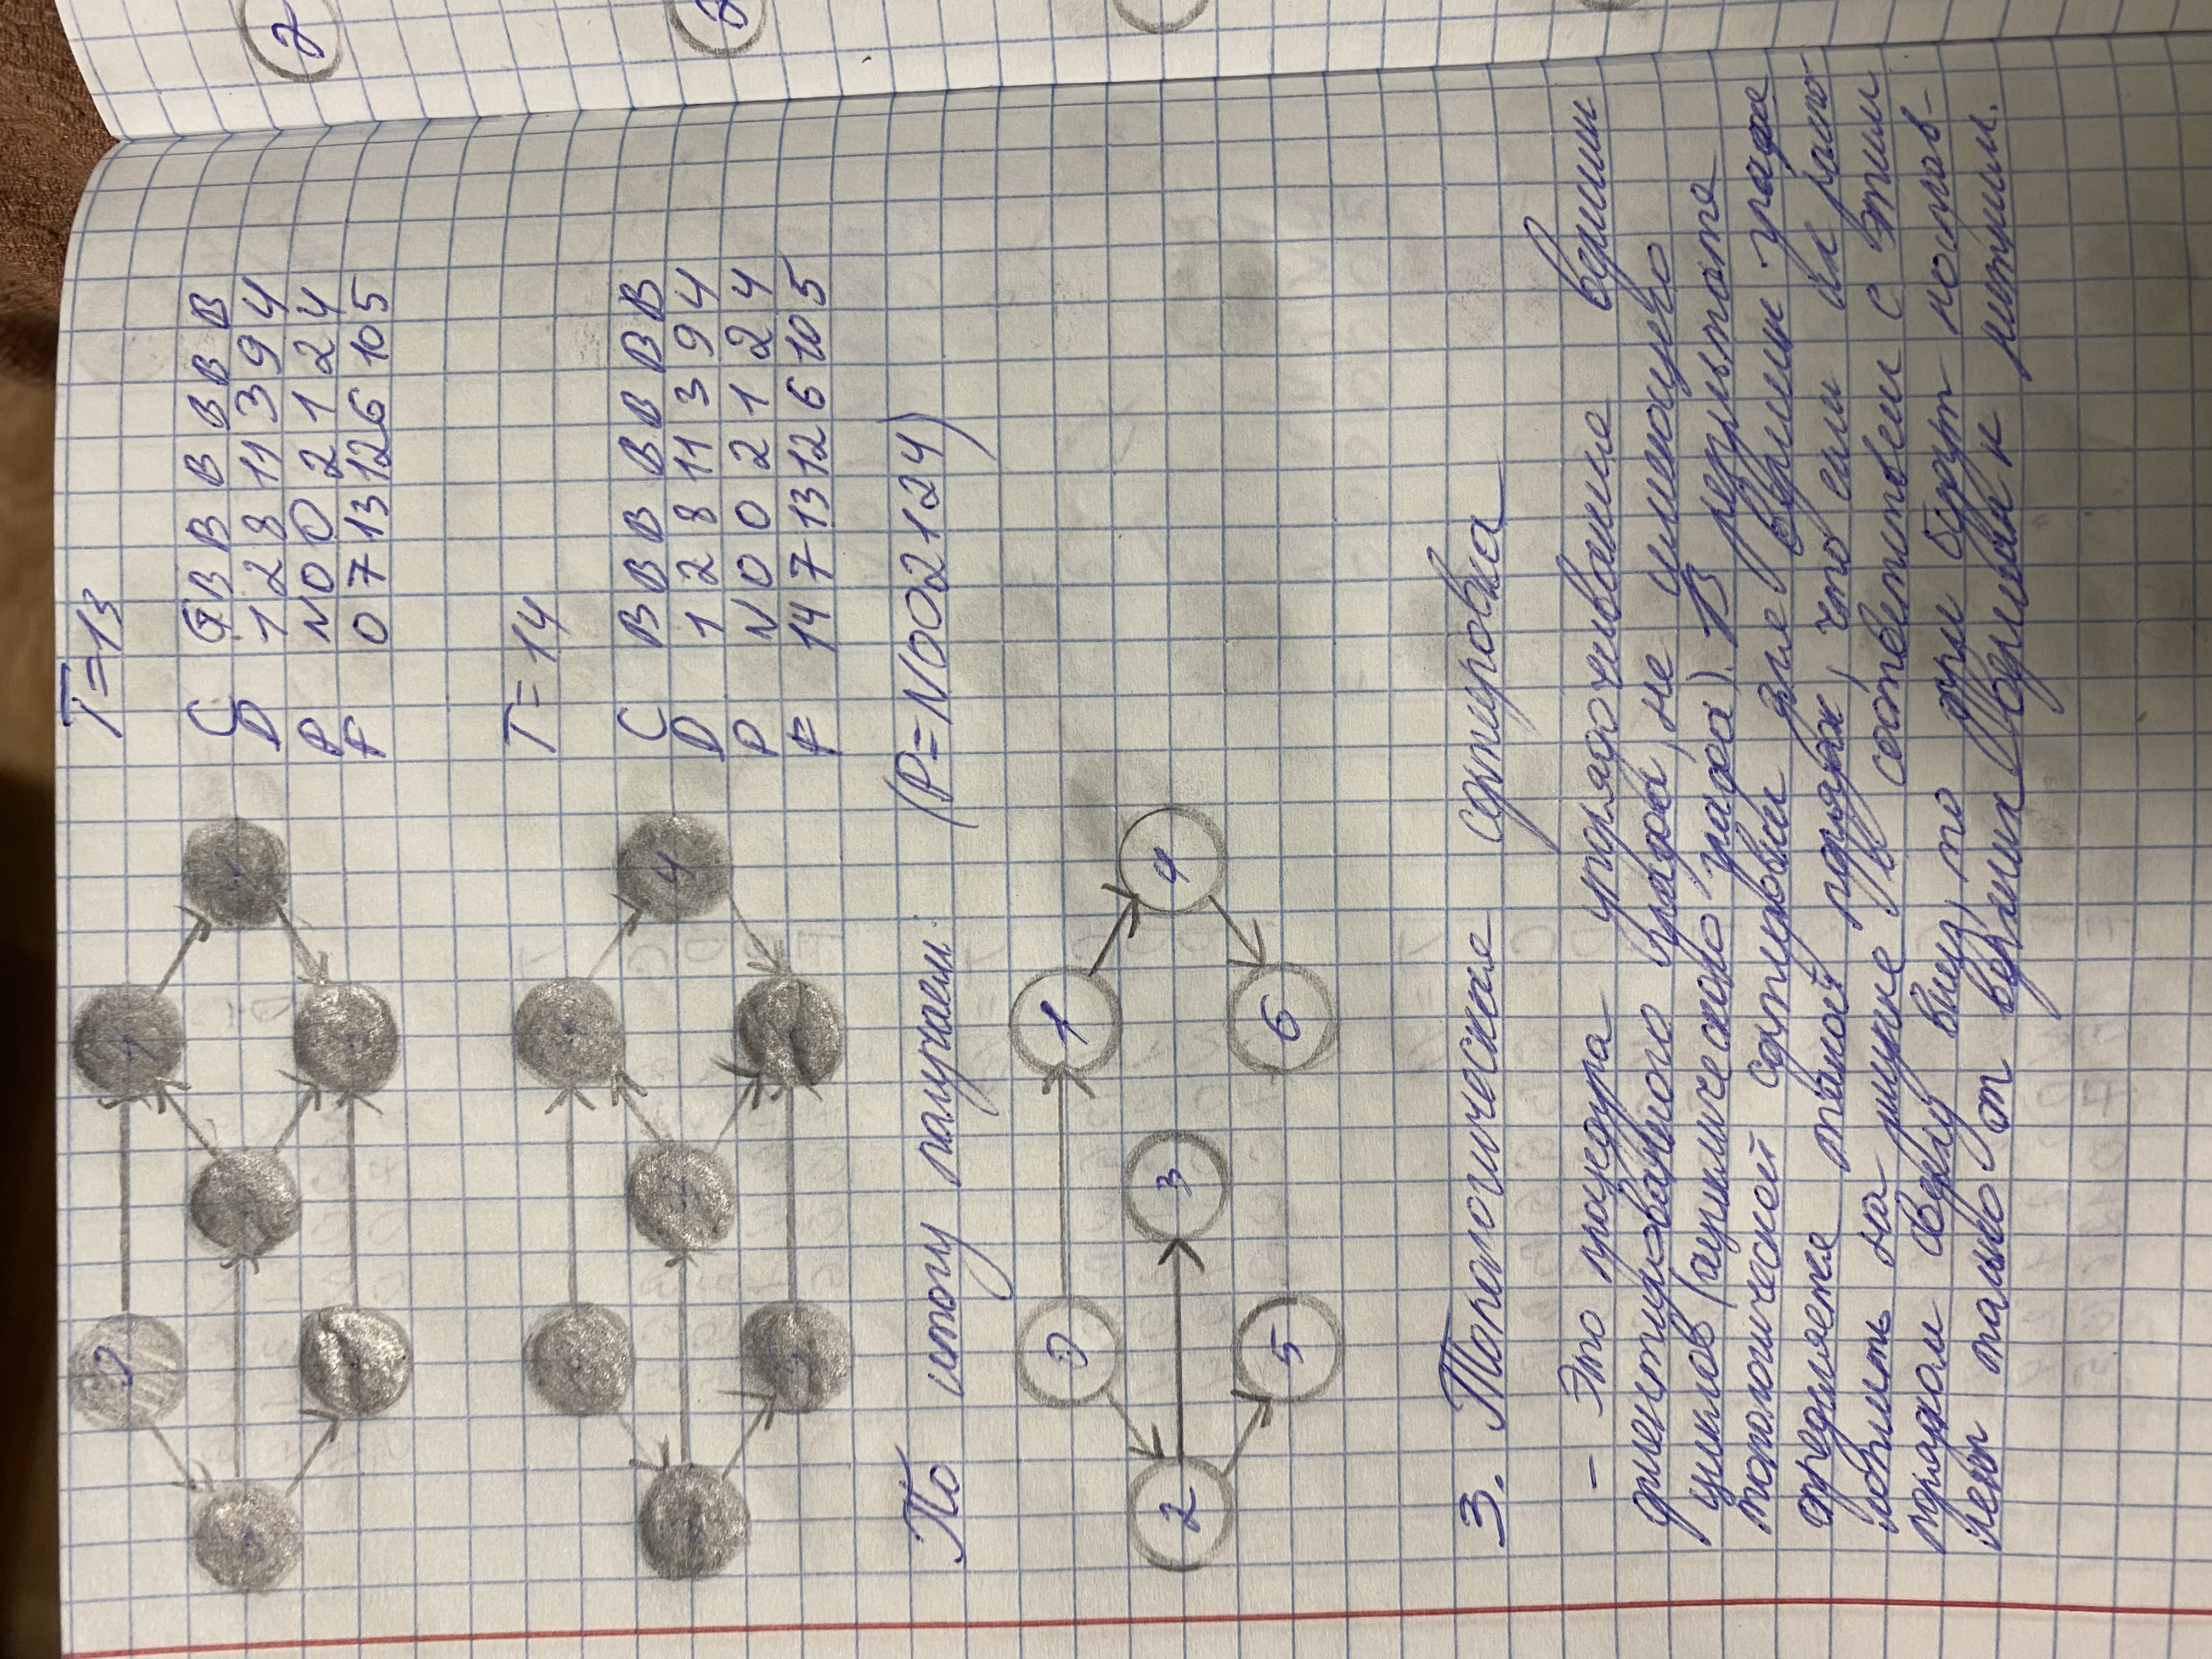 T=13
C G B B B B B B
D 1 2 8 11 3 9 4
P N 0 0 2 1 2 4
F 0 7 13 12 6 10 5
T=14
4
C B B B B B B B
D 1 2 8 11 3 9 4
P N 0 0 2 1 2 4
F 14 7 13 12 6 10 5
По итогу получаем: (P=N002124)
0 1
2 3 4
5 6
3. Топологическая сортировка
- Это процедура упорядочивания вершин
ориентированного графа, не имеющего
циклов (ациклического графа). В результате
топологической сортировки для вершин графа
определяется такой порядок, что если их распо-
ложить на рисунке в соответствии с этим
порядком сверху вниз, то дуги будут направ-
лены только от верхних вершин к нижним.
2
2